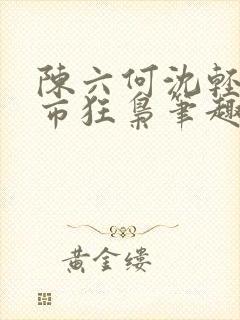 陳六何沈輕
市狂梟筆趣
黃金縷